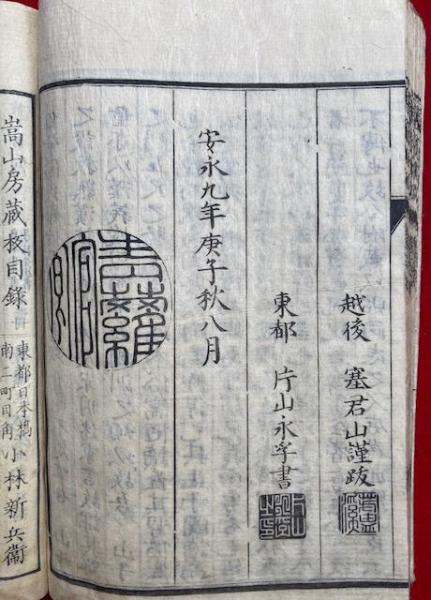 越後 塞君山謹跋
東都 片山永孚書
安永九年庚子秋八月
嵩山房蔵板目録
東都日本橋
南二町目角
小林新兵衛